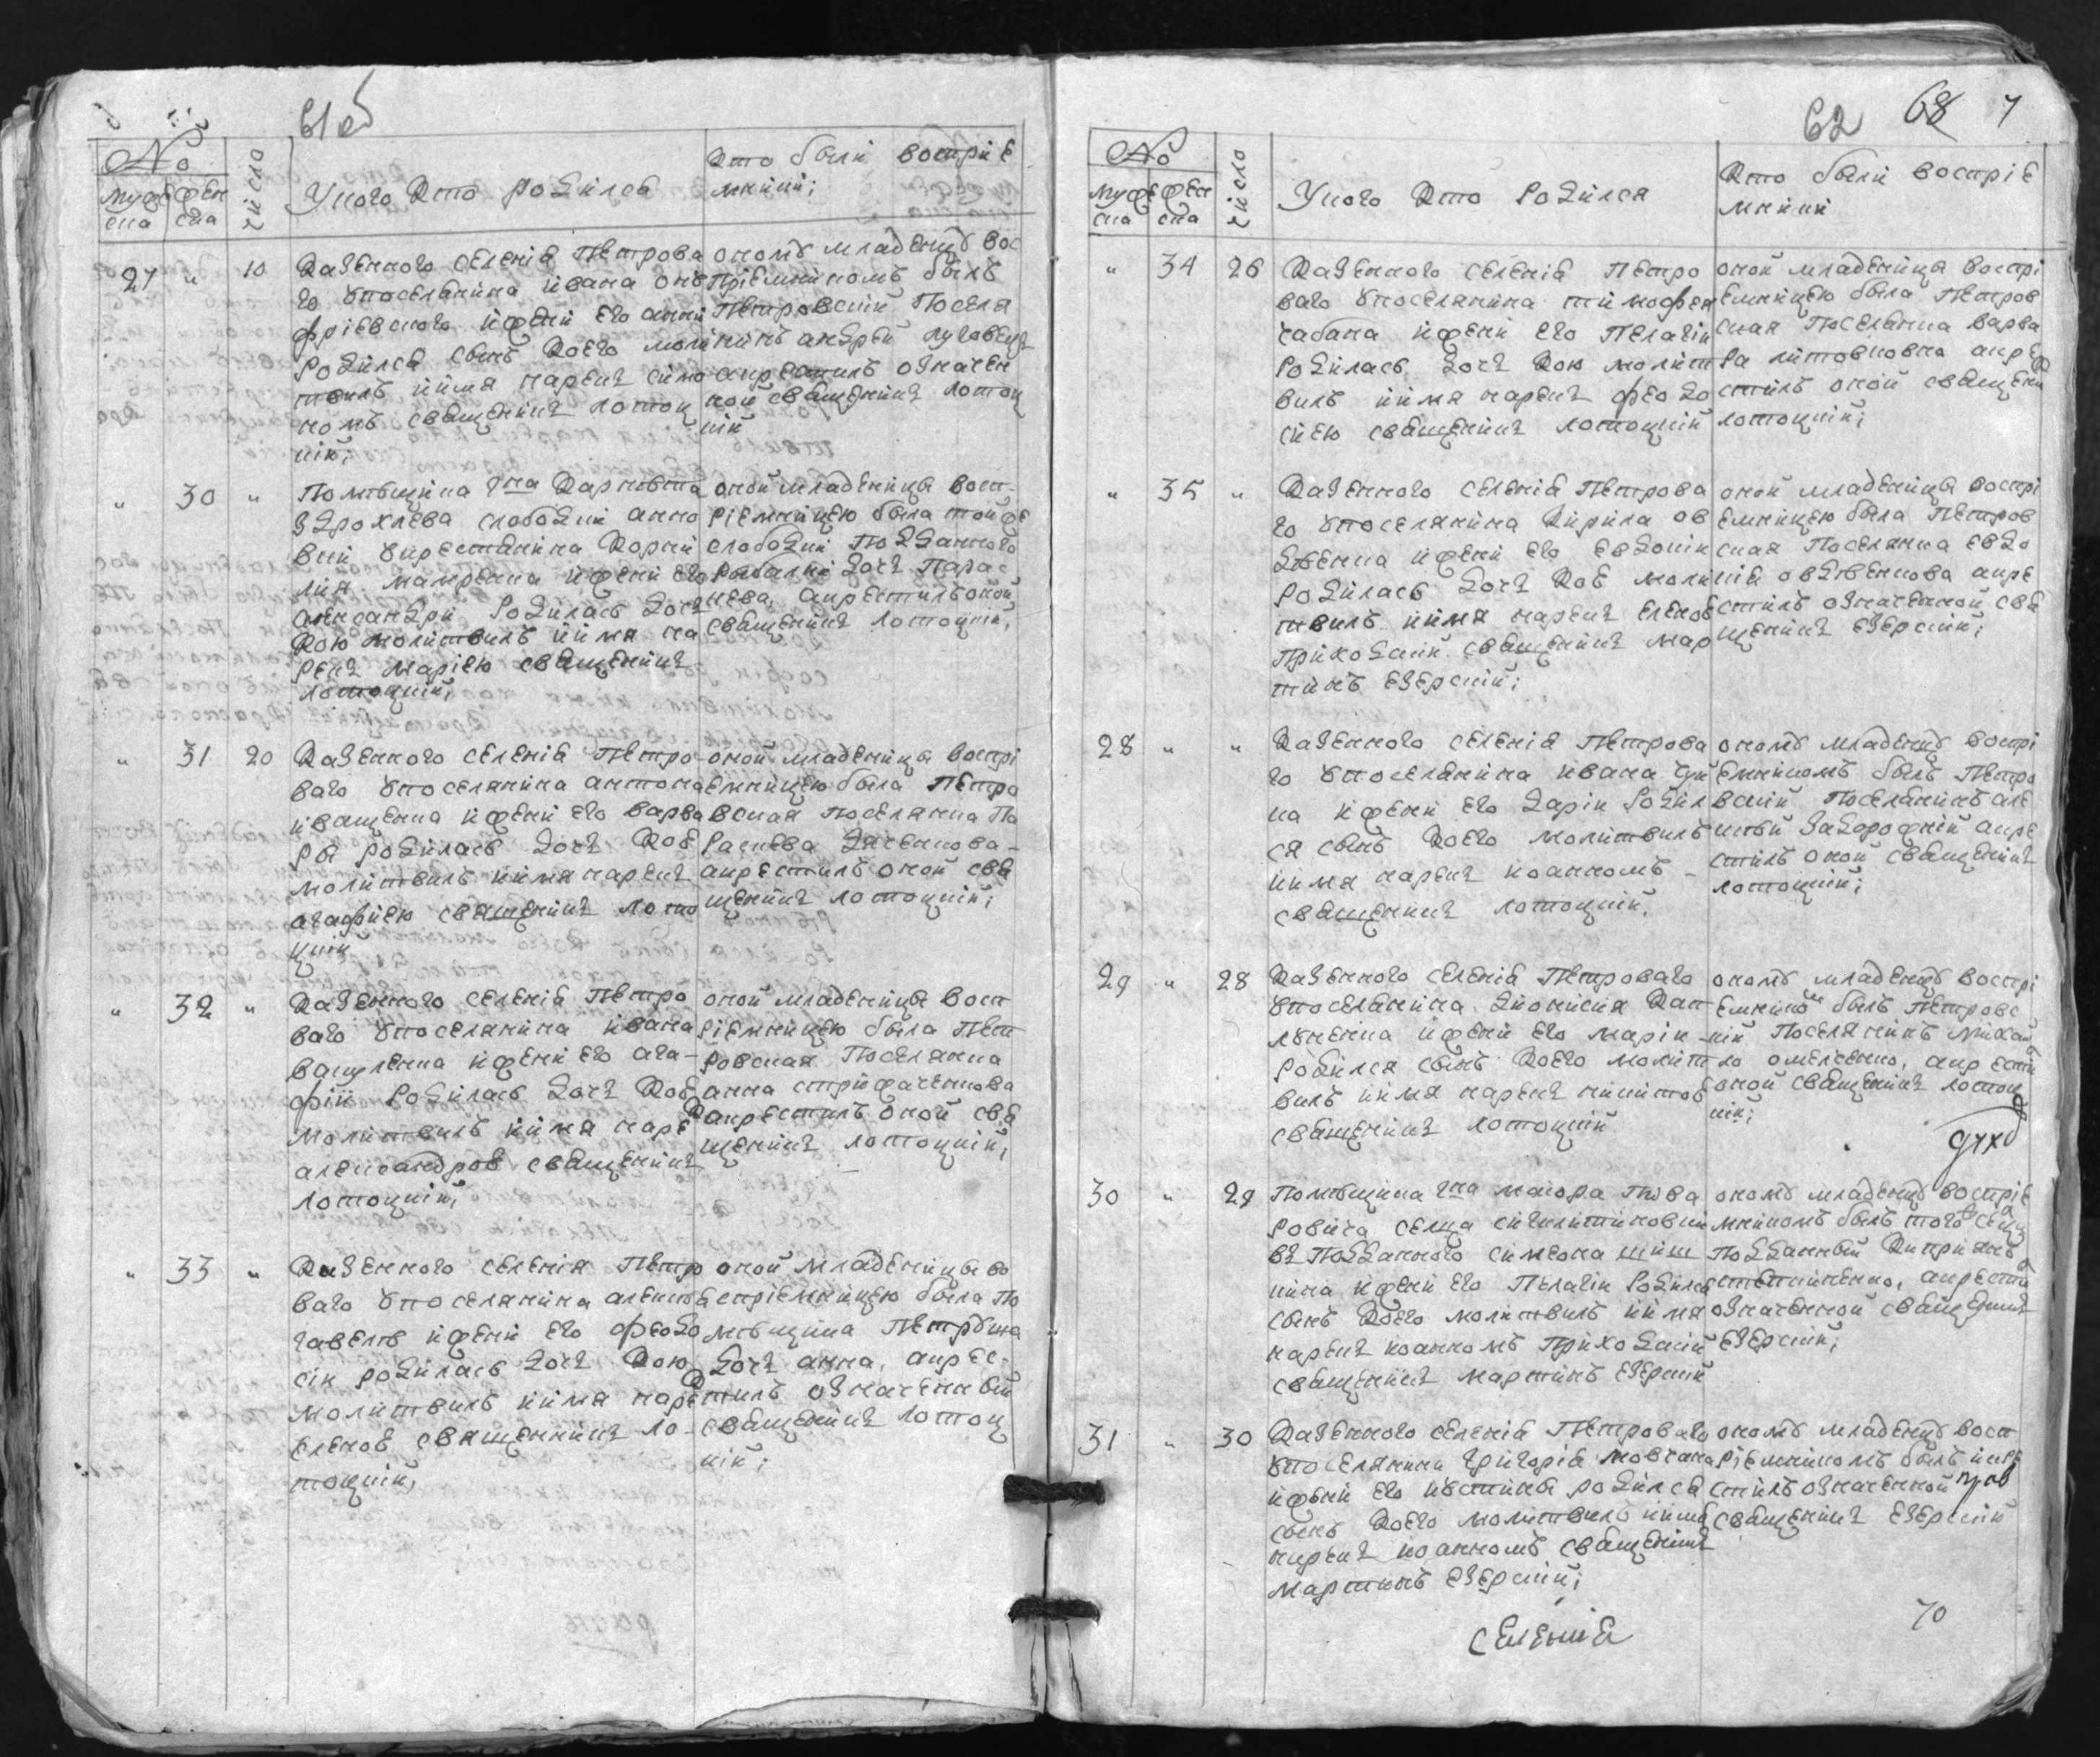 61об
№
Мужеска
Женска
Число
Укого Кто родился
Кто были восприемники;
27 " 10
Казенного селенія Петрова
го упоселянина ивана ону
фріевского ижени его анни
Родился сынъ коего моли
твилъ иимя нарекъ симо
номъ священникъ лотоц
кій;
ономъ младенцу вос
приемникомъ былъ
Петровский поселя
нинъ андрей луговецъ
окрестилъ означен
ной священникъ лотоц
кій
" 30 "
Помѣщика гна Карповича
здрохлева слободки анно
вки укрестянина Корни
лия ижени его
александри Родилась дочь
кою молитвилъ иимя на
рекъ мариею священникъ
лотоцкій;
оной младеници восп
ріемницею была той же
слободки подданного
дочь Парас
кева, окрестилъ оной
священникъ лотоцкій;
" 31 20
Казенного селенія Петро
ваго упоселянина антона
иващенка ижени его варва
ры родилась дочь кое
молитвилъ иимя нарекъ
агафиею священникъ лото
цкій
оной младеници воспрі
емницею была Петро
вская поселянка Па
раскева дяченкова
окрестилъ оной свя
щенникъ лотоцкій;
" 32 "
Казенного селенія Петро
ваго упоселянина ивана
ващленка ижени его ага
фіи Родилась дочь кое
молитвилъ иимя наре
александрою священникъ
лотоцкій;
оной младеници восп
ріемницею была Пет
ровская поселянка
анна стрижаченкова
окрестилъ оной свя
щенникъ лотоцкій;
" 33 "
Казенного селенія Петро
ваго упоселянина алексея
ижени его феодо
сіи родилась дочь кою
молитвилъ иимя наре
еленою священникъ ло
тоцкій;
оной младеници во
спріемницею была по
мѣщика
дочь анна, окрес
тилъ означенный
священникъ лотоц
кій;
62 68 7
№
Мужеска
Женска
Число
Укого Кто Родился
Кто были восприемники
" 34 26
Казенного селенія Петро
ваго упоселянина тимофея
чабана ижени его Пелагіи
Родилась дочь кою молит
вилъ иимя нарекъ феодо
сиею священникъ лотоцкій
оной младеници воспрі
емницею была Петров
ская поселянка варва
ра литовковна окре
стилъ оной священни
лотоцкій;
" 35 "
Казенного селенія Петрова
го упоселянина Кирила ов
дѣенка ижени его евдокіи
Родилась дочь кое моли
твилъ иимя нарекъ еленое
приходский священникъ мар
тинъ езерский;
оной младеници воспрі
емницею была Петров
ская поселянка евдо
кія овдѣенкова окре
стилъ означенной свя
щенникъ езерский;
28 " "
Казенного селенія Петрова
го упоселянина ивана чуй
ка ижени его даріи Родил
ся сынъ коего молитвилъ
иимя нарекъ иоанномъ
священникъ лотоцкій.
ономъ младенцу воспрі
емникомъ былъ Петро
вский поселянинъ але
ксѣй Загорожній окре
стилъ оной священникъ
лотоцкій;
29 " 28
Казенного селенія Петроваго
упоселянина дионисия Кап
луненка ижени его маріи
Родился сынъ коего молит
вилъ иимя нарекъ никитою
священникъ лотоцкій
ономъ младенцу воспрі
емникомъ былъ Петровс
кій поселянинъ михай
ло омелченко, окрести
оной священникъ лотоц
кій;
30 " 29
Помѣщика гна маіора Пива
ровича селца
въ подданного симеона шиш
кина ижени его Пелагіи Родился
сынъ коего молитвилъ иимя
нарекъ иоанномъ приходский
священникъ мартинъ езерский
ономъ младенцу воспріе
мникомъ былъ того селца
подданный Киприянъ
окрести
означенной священникъ
езерский;
31 " 30
Казенного селенія Петроваго
упоселянина григорія мовчана
ижени его иустины родился
сынъ коего молитвилъ иимя
нарекъ иоанномъ священникъ
мартинъ езерский;
ономъ младенцу восп
ріемникомъ былъ икре
стилъ означенной
священникъ езерский
селенія
70